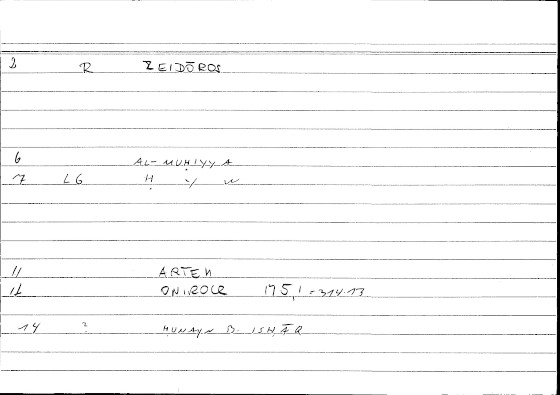 2 R ZEIDŌROS
6 AL-MUḤIYYA
7 LG Ḥ Y W
11 ARTEM
12 ONIROCR 175,1 = 314.13
14 ? ḤUNAYN B. ISḤĀQ